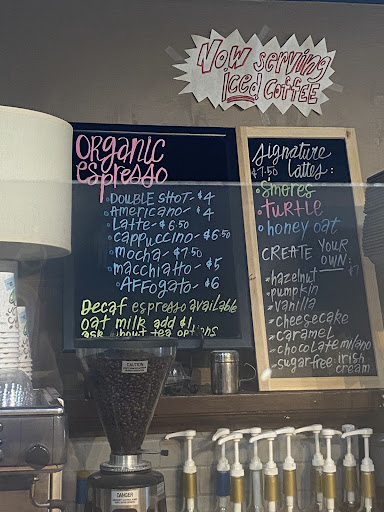 Now serving
iced coffee
ORGANIC
espresso
• DOUBLE SHOT - $4
• Americano - $4
• Latte - $6.50
• cappuccino - $6.50
• mocha - $7.50
• macchiatto - $5
• AFFogato - $6
Decaf espresso available
oat milk add $1
ask about tea options
Signature
$7.50 Lattes:
• S'mores
• TURTLE
• honey oat
CREATE YOUR
OWN: $7
• hazelnut
• pumpkin
• vanilla
• cheesecake
• caramel
• chocolate milano
• sugar-free: irish
cream
CAUTION
DANGER